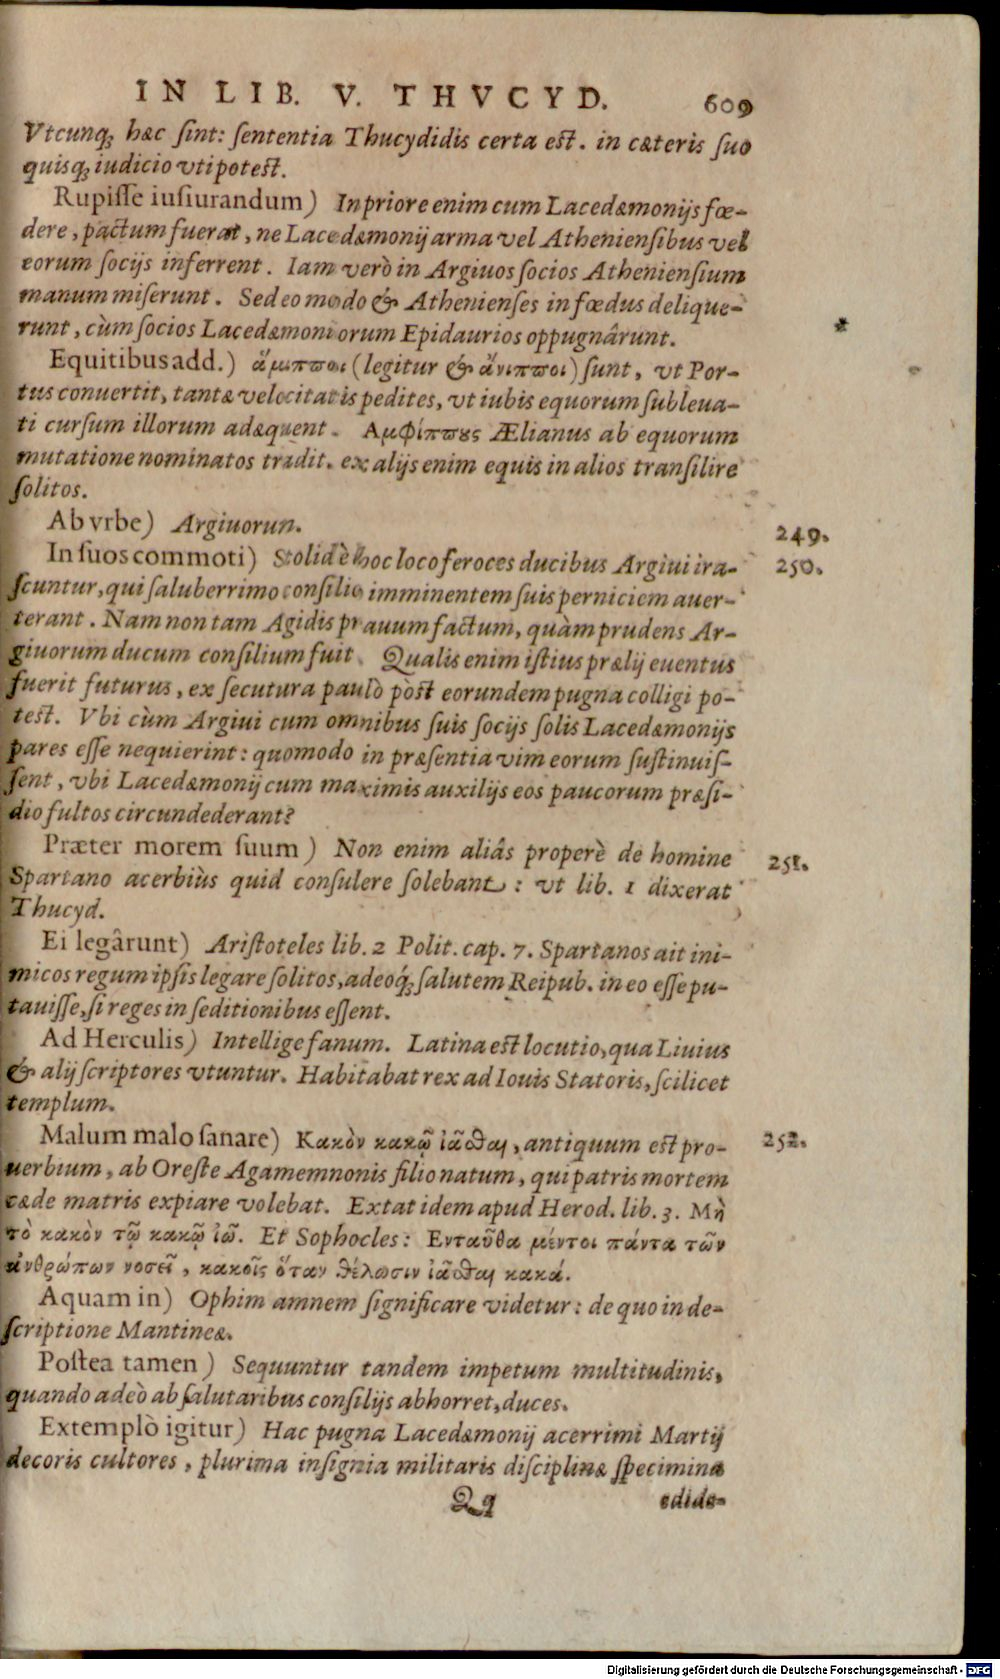 IN LIB. V. THVCYD. 609
Vtcunq; hæc ſint: ſententia Thucydidis certa eſt. in cæteris ſuo
quisq; iudicio vti poteſt.
Rupiſſe iuſiurandum) In priore enim cum Lacedæmonijs fœ-
dere, pactum fuerat, ne Lacedæmonij arma vel Athenienſibus vel
eorum ſocijs inferrent. Iam verò in Argiuos ſocios Athenienſium
manum miſerunt. Sed eo modo & Athenienſes in fœdus delique-
runt, cùm ſocios Lacedæmoniorum Epidaurios oppugnârunt.
Equitibus add.) ἅμιπποι (legitur & ἄνιπποι) ſunt, vt Por-
tus conuertit, tantæ velocitatis pedites, vt iubis equorum ſubleua-
ti curſum illorum adæquent. Αμφίππους Ælianus ab equorum
mutatione nominatos tradit. ex alijs enim equis in alios tranſilire
ſolitos.
Ab vrbe) Argiuorun. 249.
In ſuos commoti) Stolidè hoc loco feroces ducibus Argiui ira- 250.
ſcuntur, qui ſaluberrimo conſilio imminentem ſuis perniciem auer-
terant. Nam non tam Agidis prauum factum, quàm prudens Ar-
giuorum ducum conſilium fuit. Qualis enim iſtius prælij euentus
fuerit futurus, ex ſecutura paulò pòſt eorundem pugna colligi po-
teſt. Vbi cùm Argiui cum omnibus ſuis ſocijs ſolis Lacedæmonijs
pares eſſe nequierint: quomodo in præſentia vim eorum ſuſtinuiſ-
ſent, vbi Lacedæmonij cum maximis auxilijs eos paucorum præſi-
dio fultos circundederant?
Præter morem ſuum) Non enim aliâs properè de homine 251.
Spartano acerbiùs quid conſulere ſolebant: vt lib. 1 dixerat
Thucyd.
Ei legârunt) Ariſtoteles lib. 2 Polit. cap. 7. Spartanos ait ini-
micos regum ipſis legare ſolitos, adeoq́; ſalutem Reipub. in eo eſſe pu-
tauiſſe, ſi reges in ſeditionibus eſſent.
Ad Herculis) Intellige fanum. Latina eſt locutio, qua Liuius
& alij ſcriptores vtuntur. Habitabat rex ad Iouis Statoris, ſcilicet
templum.
Malum malo ſanare) Κακὸν κακῷ ἰᾶσθαι, antiquum eſt pro- 252.
uerbium, ab Oreſte Agamemnonis filio natum, qui patris mortem
cæde matris expiare volebat. Extat idem apud Herod. lib. 3. Μὴ
τὸ κακὸν τῷ κακῷ ἰῶ. Et Sophocles: Ενταῦθα μέντοι πάντα τῶν
ἀνθρώπων νοσεῖ, κακοῖς ὅταν θέλωσιν ἰᾶσθαι κακά.
Aquam in) Ophim amnem ſignificare videtur: de quo in de-
ſcriptione Mantineæ.
Poſtea tamen) Sequuntur tandem impetum multitudinis,
quando adeò ab ſalutaribus conſilijs abhorret, duces.
Extemplò igitur) Hac pugna Lacedæmonij acerrimi Martij
decoris cultores, plurima inſignia militaris diſciplinæ ſpecimina
Qq edide-
Digitalisierung gefördert durch die Deutsche Forschungsgemeinschaft - DFG